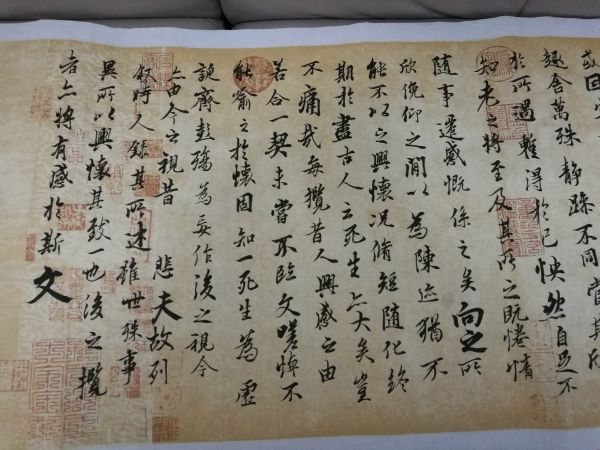 或因
趣舍萬殊靜躁不同當其欣
於所遇蹔得於己怏然自足不
知老之將至及其所之既惓情
隨事遷感慨係之矣向之所
欣俛仰之閒以為陳迹猶不
能不以之興懷況脩短隨化終
期於盡古人云死生亦大矣豈
不痛哉每攬昔人興感之由
若合一契未嘗不臨文嗟悼不
能喻之於懷固知一死生為虛
誕齊彭殤為妄作後之視今
亦由今之視昔 悲夫故列
敘時人錄其所述雖世殊事
異所以興懷其致一也後之攬
者亦將有感於斯文